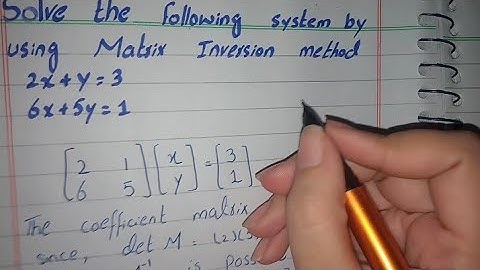 Solve the following system by
using Matrix Inversion method
2x + y = 3
6x + 5y = 1
[2 1
6 5] [x
y] = [3
1]
The coefficient matrix
since, det M = (2)(5
M⁻¹ is poss